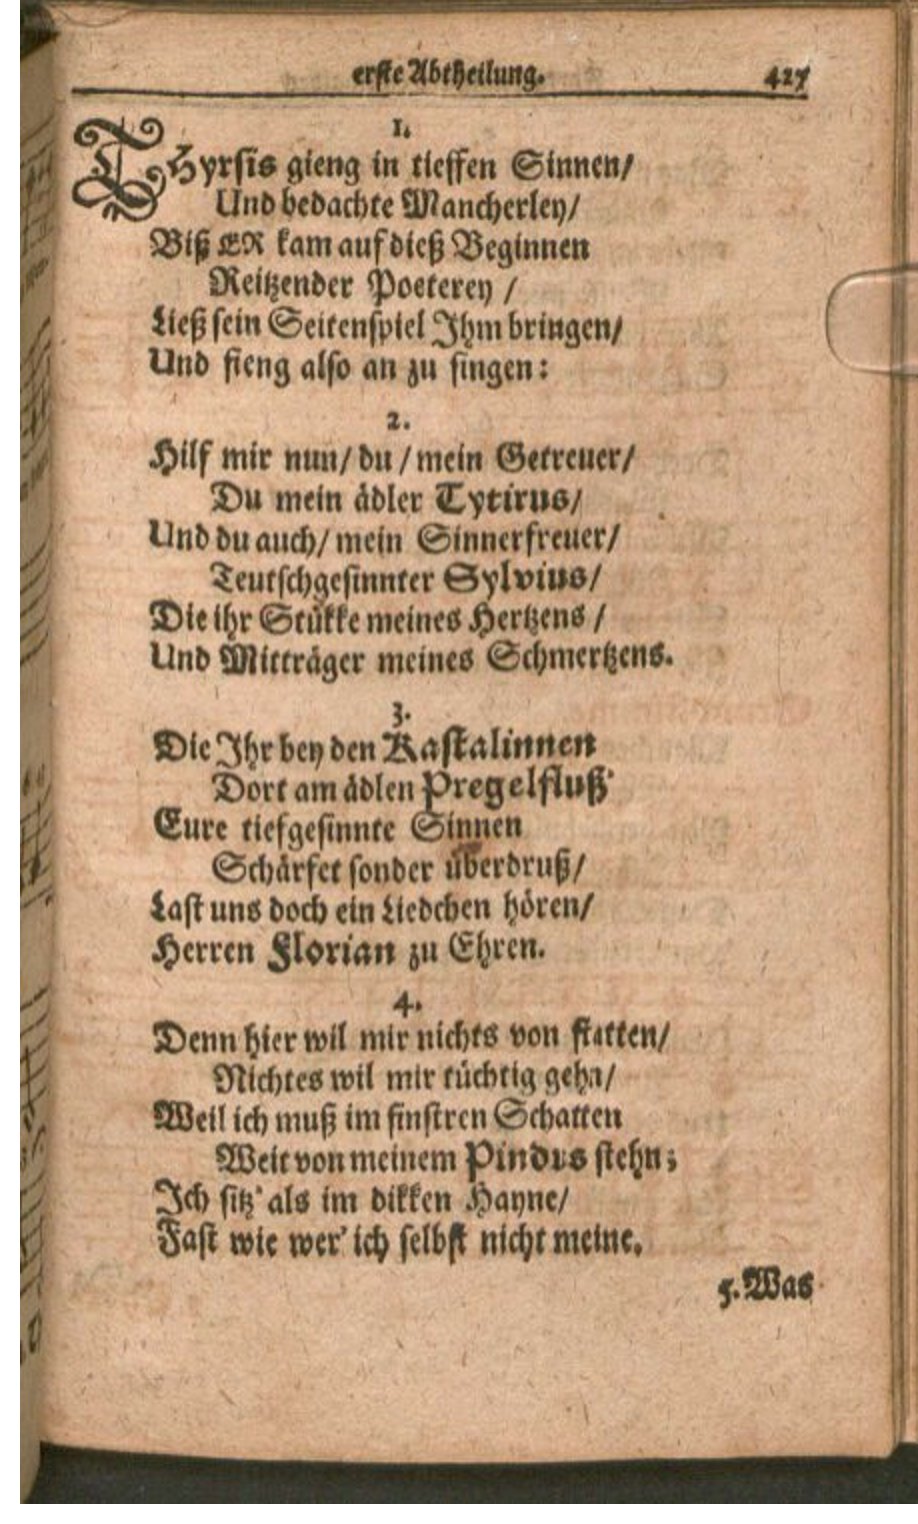 erste Abtheilung. 427
1.
THyrsis gieng in tieffen Sinnen/
Und bedachte Mancherley/
Biß ER kam auf dieß Beginnen
Reitzender Poeterey /
Ließ sein Seitenspiel Jhm bringen/
Und fieng also an zu singen:
2.
Hilf mir nun/ du / mein Getreuer/
Du mein ädler Tytirus/
Und du auch/ mein Sinnerfreuer/
Teutschgesinnter Sylvius/
Die ihr Stükke meines Hertzens /
Und Mitträger meines Schmertzens.
3.
Die Jhr bey den Kastalinnen
Dort am ädlen Pregelfluß'
Eure tiefgesinnte Sinnen
Schärfet sonder überdruß/
Last uns doch ein Liedchen hören/
Herren Florian zu Ehren.
4.
Denn hier wil mir nichts von statten/
Nichtes wil mir tüchtig gehn/
Weil ich muß im finstren Schatten
Weit von meinem Pindus stehn;
Jch sitz' als im dikken Hayne/
Fast wie wer' ich selbst nicht meine.
5. Was